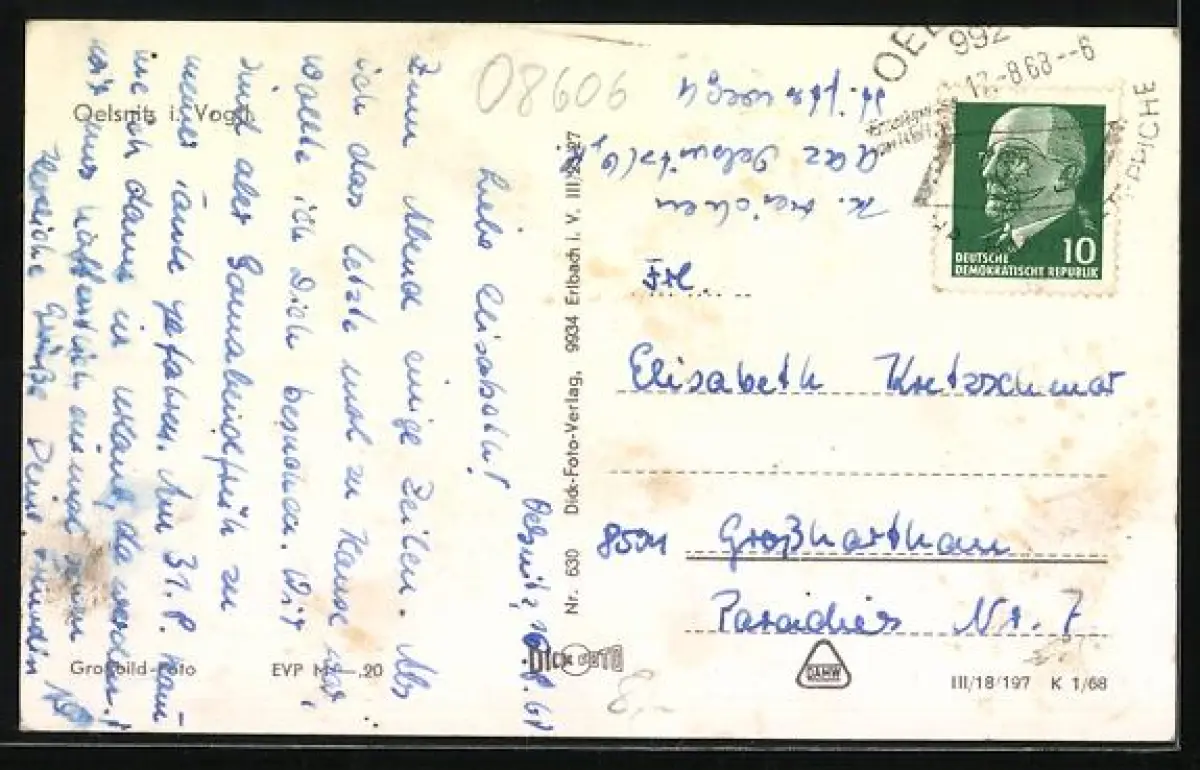 Oelsnitz i. Vogtl.
08606
Oelsnitz, 16.8.68
Liebe Elisabeth!
Zum Abend einige Zeilen. Als
ich das letzte mal zu Hause war,
wollte ich Dich besuchen. Wir
sind aber Sonnabend früh zu
meiner Tante gefahren. Am 31.8. kom-
me ich dann in Urlaub, da werden
wir uns hoffentlich einmal sehen!
Herzliche Grüße Deine Freundin
Großbild-Foto
EVP M —,20
Nr. 630 Dick-Foto-Verlag, 9934 Erlbach i. V. III/26/27
DICK FOTO
OEL
992
17.-8.68--6
TEPPICHE
10
DEUTSCHE
DEMOKRATISCHE REPUBLIK
993 Oelsnitz
Frl.
Elisabeth Kretzschmar
8501 Großharthau
Paradies Nr. 7
DAHW
III/18/197 K 1/68